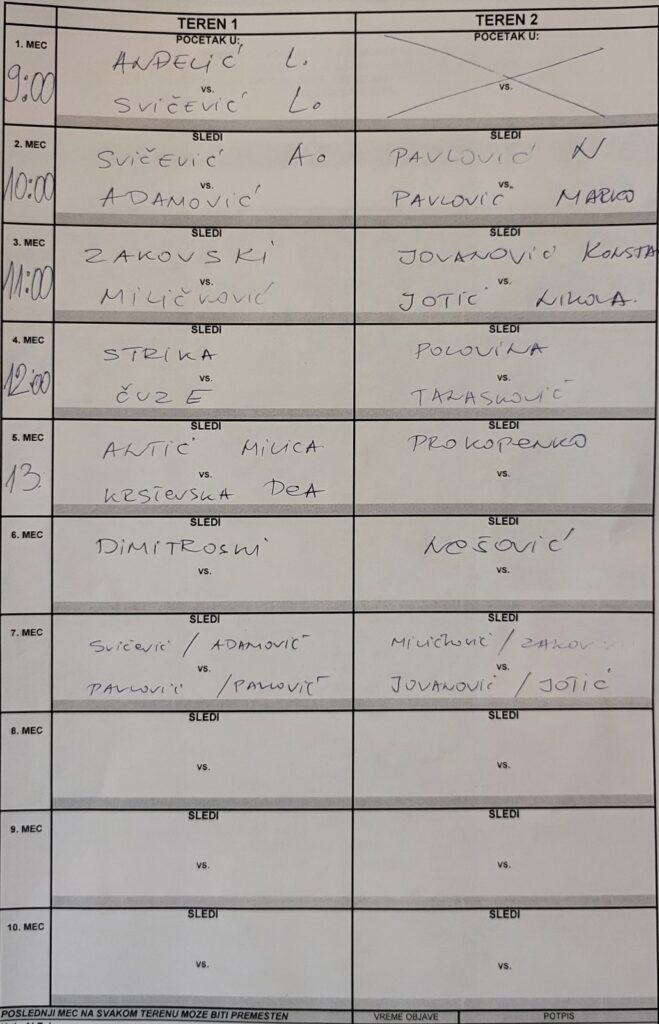 TEREN 1 TEREN 2
1. MEC POCETAK U: POCETAK U:
9:00 ANĐELIĆ L.
vs. vs.
SVIČEVIĆ L.
2. MEC SLEDI SLEDI
10:00 SVIČEVIĆ A. PAVLOVIĆ N
vs. vs.
ADAMOVIĆ PAVLOVIĆ MARKO
3. MEC SLEDI SLEDI
11:00 ZAKOVSKI JOVANOVIĆ KONSTA
vs. vs.
MILIČKOVIĆ JOTIĆ NIKOLA.
4. MEC SLEDI SLEDI
12:00 STRIKA POLOVINA
vs. vs.
ČUZE TARASKOVIĆ
5. MEC SLEDI SLEDI
13. ANTIĆ MILICA PROKOPENKO
vs. vs.
KRSTEVSKA DEA
6. MEC SLEDI SLEDI
DIMITROSKI NEŠOVIĆ
vs. vs.
7. MEC SLEDI SLEDI
SVIČEVIĆ / ADAMOVIĆ MILIČKOVIĆ /
vs. vs.
PAVLOVIĆ / PAVLOVIĆ JOVANOVIĆ / JOTIĆ
8. MEC SLEDI SLEDI
vs. vs.
9. MEC SLEDI SLEDI
vs. vs.
10. MEC SLEDI SLEDI
vs. vs.
POSLEDNJI MEC NA SVAKOM TERENU MOZE BITI PREMESTEN VREME OBJAVE POTPIS